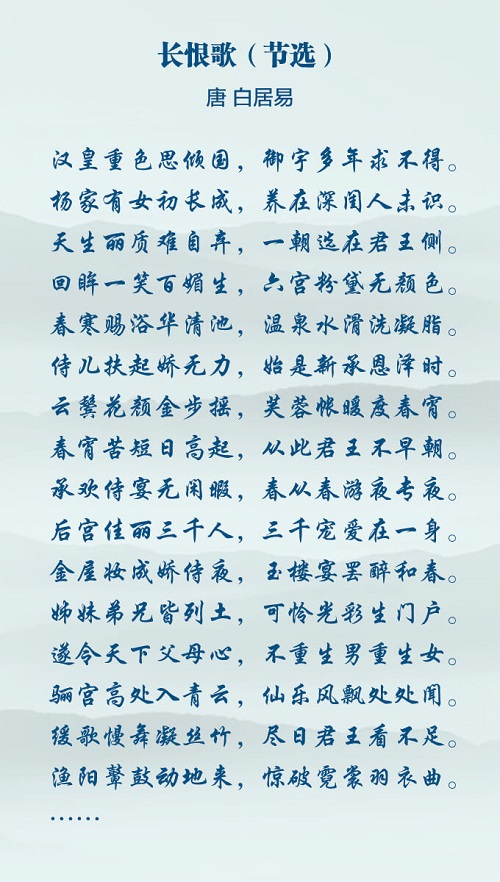 长恨歌（节选）
唐 白居易
汉皇重色思倾国，御宇多年求不得。
杨家有女初长成，养在深闺人未识。
天生丽质难自弃，一朝选在君王侧。
回眸一笑百媚生，六宫粉黛无颜色。
春寒赐浴华清池，温泉水滑洗凝脂。
侍儿扶起娇无力，始是新承恩泽时。
云鬓花颜金步摇，芙蓉帐暖度春宵。
春宵苦短日高起，从此君王不早朝。
承欢侍宴无闲暇，春从春游夜专夜。
后宫佳丽三千人，三千宠爱在一身。
金屋妆成娇侍夜，玉楼宴罢醉和春。
姊妹弟兄皆列土，可怜光彩生门户。
遂令天下父母心，不重生男重生女。
骊宫高处入青云，仙乐风飘处处闻。
缓歌慢舞凝丝竹，尽日君王看不足。
渔阳鼙鼓动地来，惊破霓裳羽衣曲。
……